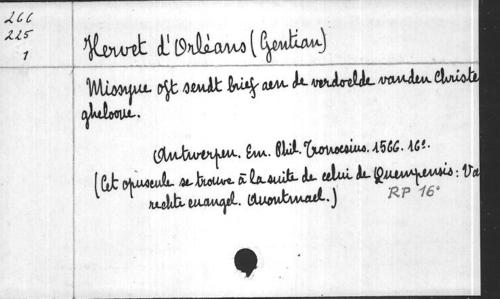 266
225
1
Hervet d'Orléans (Gentian)
Missyue oft sendt brief aen de verdoelde vanden Christe
gheloove.
Antwerpen. Em. Phil. Tronoesius. 1566. 16°.
(Cet opuscule se trouve à la suite de celui de Quempensis: Va
rechte euangel. Auontmael.)
RP 16°